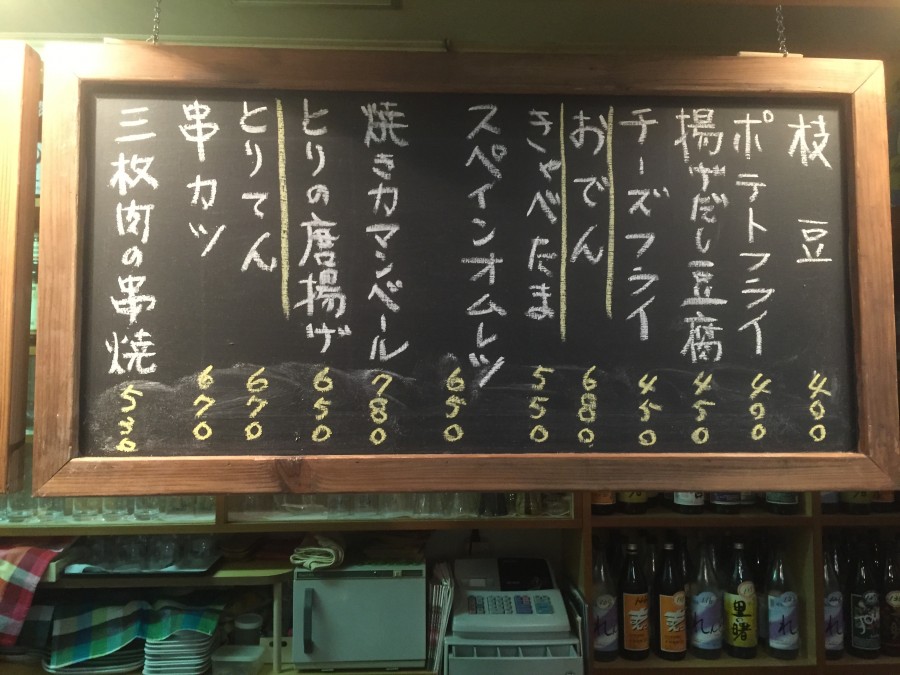 枝豆 400
ポテトフライ 400
揚げだし豆腐 450
チーズフライ 450
おでん 680
きゃべたま 550
スペインオムレツ 650
焼きカマンベール 780
とりの唐揚げ 650
とりてん 670
串カツ 670
三枚肉の串焼 530
黒曙